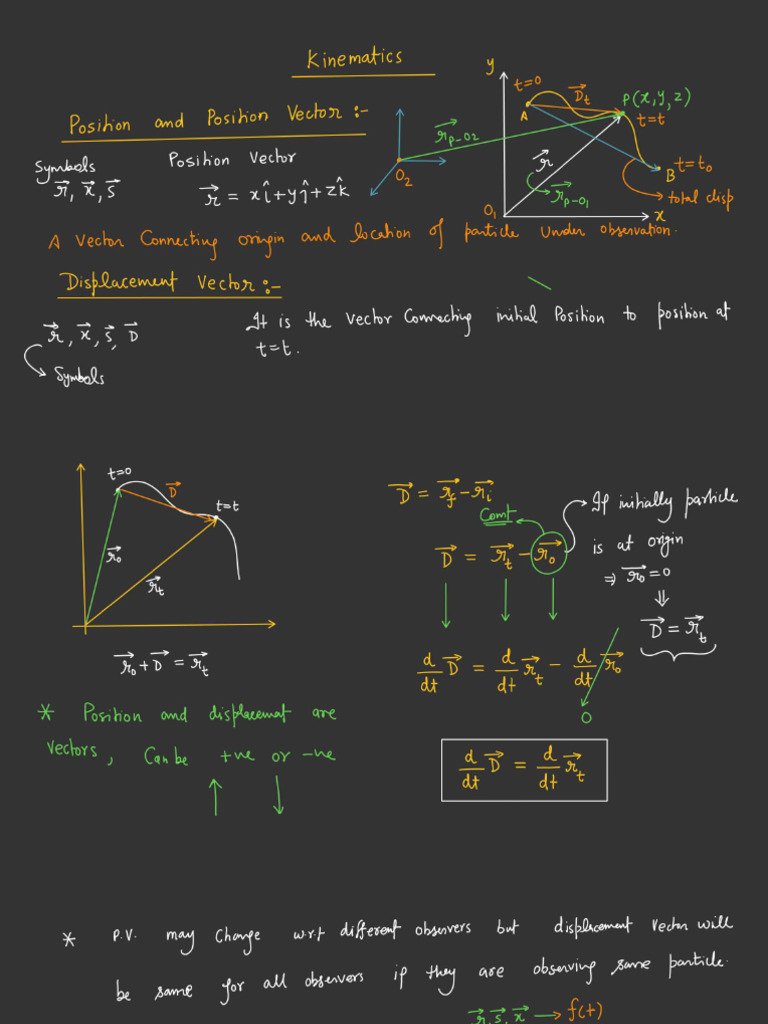 Kinematics
Position and Position Vector :-
Symbols
r⃗, x⃗, s⃗
Position Vector
r⃗ = xî+yĵ+zk̂
y
t=0
A
D⃗t
P(x,y,z)
t=t
r⃗P-O2
O2
r⃗
r⃗P-O1
B
t=t₀
total disp
O1
x
A vector Connecting origin and location of particle under observation.
Displacement Vector :-
r⃗, x⃗, s⃗, D⃗
Symbols
It is the vector Connecting initial Position to position at
t=t.
t=0
D⃗
t=t
r⃗₀
r⃗t
r⃗₀+D⃗ = r⃗t
D⃗ = r⃗f - r⃗i
Const
D⃗ = r⃗t - r⃗₀
If initially particle
is at origin
⇒ r⃗₀=0
⇓
D⃗ = r⃗t
d/dt D⃗ = d/dt r⃗t - d/dt r⃗₀
0
d/dt D⃗ = d/dt r⃗t
* Position and displacemat are
vectors, Can be +ve or -ve
* P.V. may Change w.r.t different observers but displacement vector will
be same for all observers if they are observing same particle.
r⃗, s⃗, x⃗ → f(t)